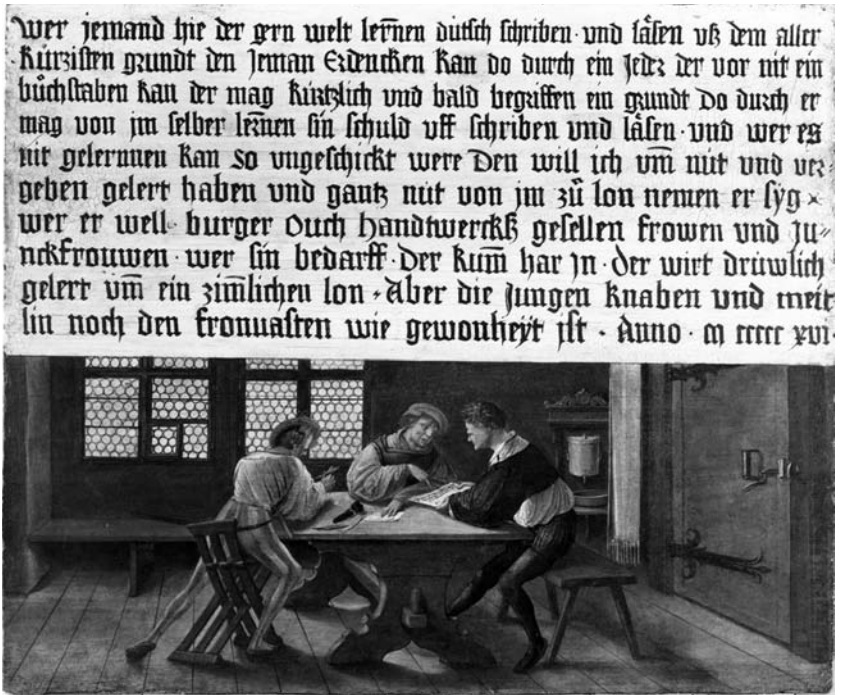 wer jemand hie der gern welt lern̄en dütsch schriben · vnd lǎsen vß dem aller
kürzisten grundt den Jeman Erdencken kan do durch ein jeder der vor nit ein
bůchstaben kan der mag kürtzlich vnd bald begriffen ein grundt do durch er
mag von jm selber lern̄en sin schuld vff schriben vnd lǎsen · vnd wer es
nit gelernnen kan so vngeschickt were Den will ich vm̄ nüt vnd ver⸗
geben gelert haben vnd gantz nüt von jm zů lon nemen er syg
wer er well · burger Ouch handtwerckß gesellen frowen vnd ju⸗
nckfrouwen · wer sin bedarff · Der kum̄ har jn · der wirt drüwlich
gelert vm̄ ein zim̄lichen lon · Aber die jungen knaben vnd meit
lin noch den fronuasten wie gewonheyt jst · Anno · m ccccc xvi ·